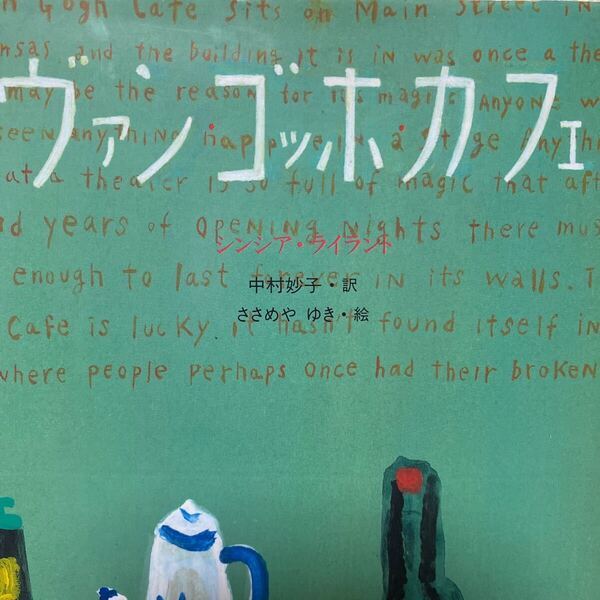 n Gogh Cafe sits on Main Street in
nsas and the building it is in was once a the
may be the reason for its magic. Anyone w
ヴァン・ゴッホ・カフェ
seen anything happen in a stage anythi
at a theater is so full of magic that aft
d years of opening nights there mus
シンシア・ライラント
enough to last forever in its walls. T
中村妙子・訳
Cafe is lucky it hasn't found itself in
ささめや ゆき・絵
where people perhaps once had their broken